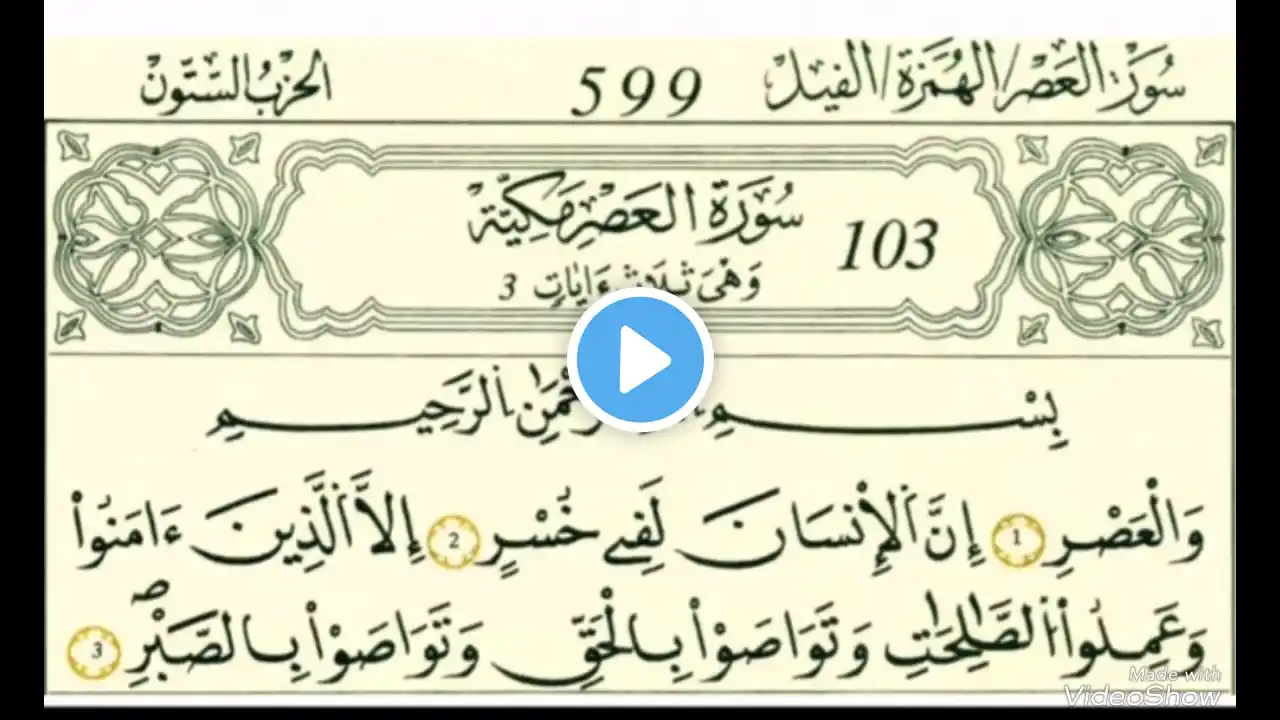 سُورَة: العَصْر/الهُمَزَة/الفِيل 599 الحِزْبُ السِّتُّونَ
سُورَةُ العَصْرِ مَكِّيَّةٌ 103
وَهْيَ ثَلَاثُ ءَايَاتٍ 3
بِسْمِ الرَّحْمَٰنِ الرَّحِيمِ
وَالْعَصْرِ 1 إِنَّ اَلْإِنسَانَ لَفِے خُسْرٍ 2 إِلاَّ اَلذِينَ ءَامَنُواْ
وَعَمِلُواْ اُلصَّٰلِحَٰتِ وَتَوَاصَوْاْ بِالْحَقِّ وَتَوَاصَوْاْ بِالصَّبْرِ 3
Made with
VideoShow